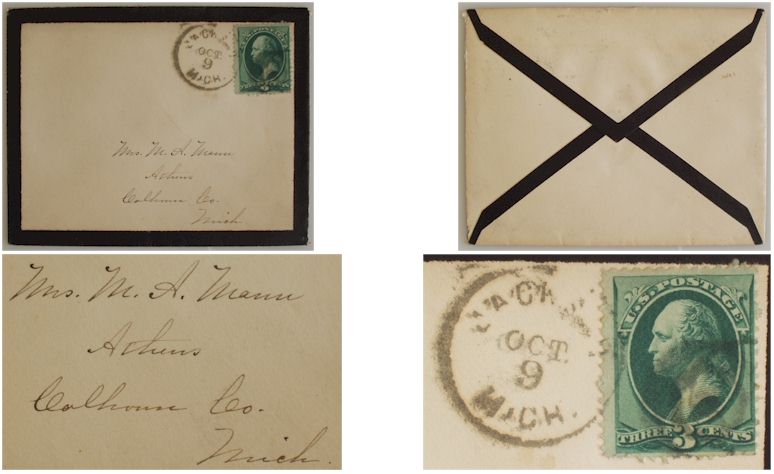 OCT.
9
MICH.
U.S. POSTAGE
3
Mrs. M. A. Mann
Athens
Calhoun Co.
Mich.
Mrs. M. A. Mann
Athens
Calhoun Co.
Mich.
OCT.
9
MICH.
U.S. POSTAGE
THREE 3 CENTS